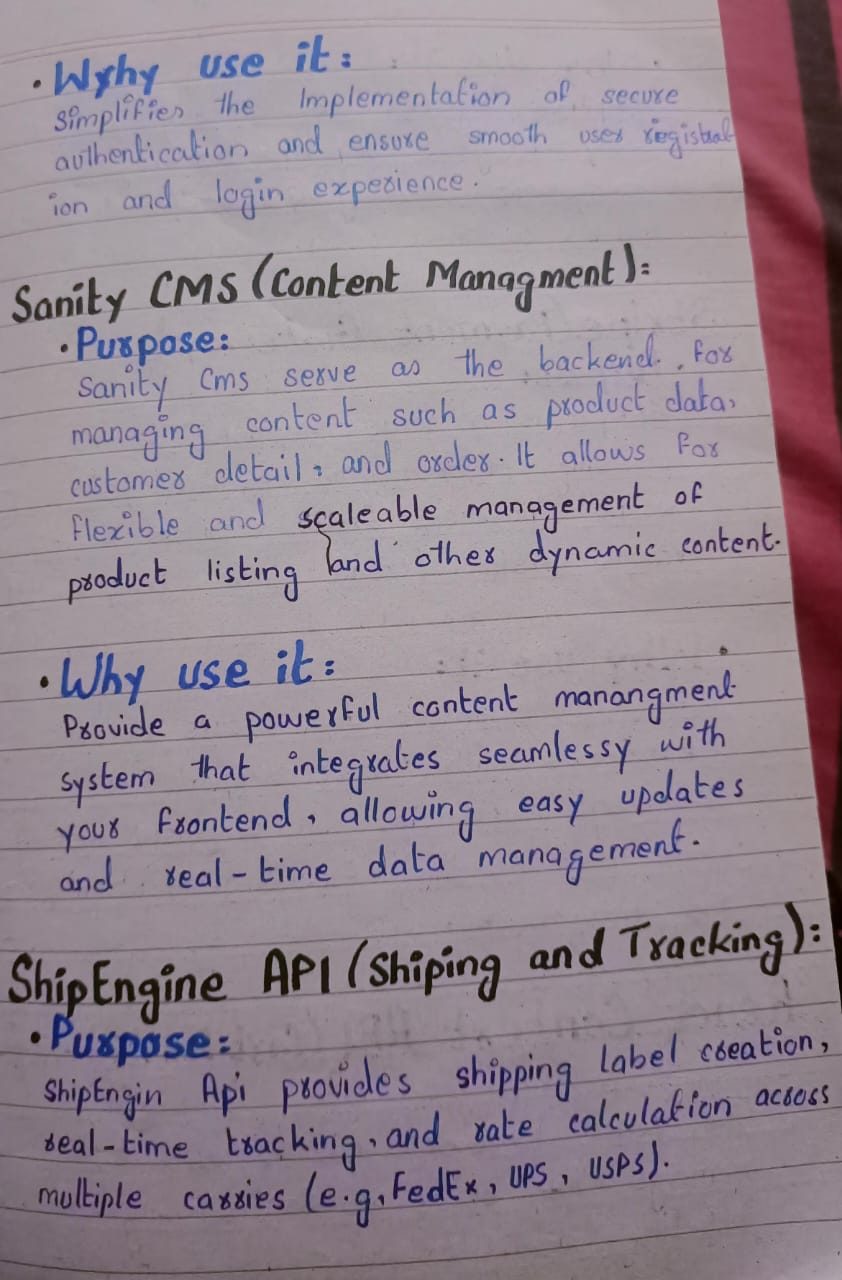 • Wyhy use it:
Simplifies the Implementation of secure
authentication and ensure smooth user registrat-
ion and login experience.
Sanity CMS (Content Managment):
• Purpose:
Sanity Cms serve as the backend for
managing content such as product data,
customer detail, and order. It allows for
flexible and scaleable management of
product listing and other dynamic content.
• Why use it:
Provide a powerful content manangment
system that integrates seamlessy with
your frontend, allowing easy updates
and real-time data management.
ShipEngine API (Shiping and Tracking):
• Purpose:
ShipEngin Api provides shipping label creation,
real-time tracking, and rate calculation across
multiple carries (e.g, FedEx, UPS, USPS).